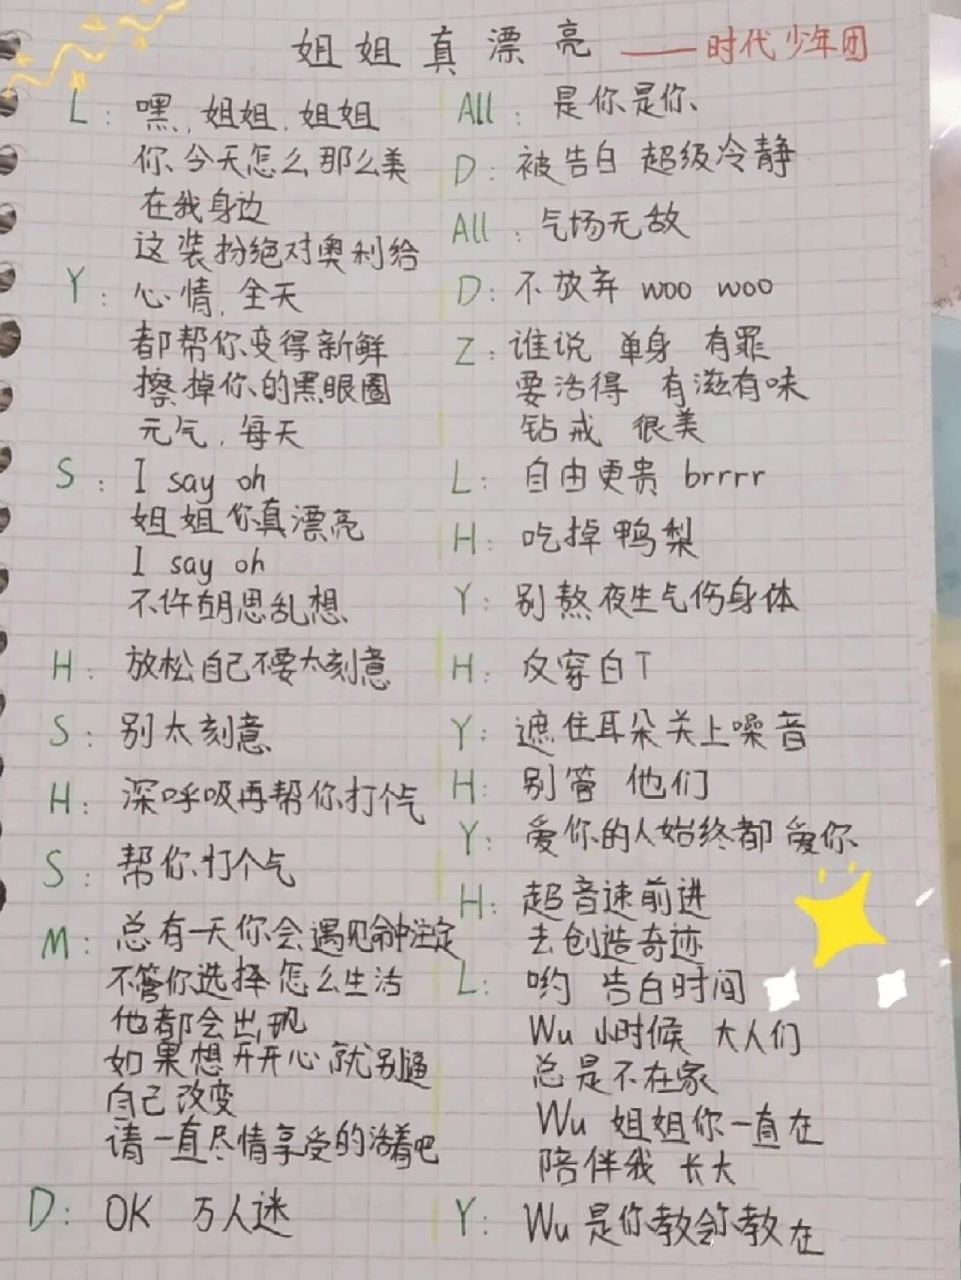 姐姐真漂亮 ——时代少年团
L: 嘿,姐姐,姐姐
你今天怎么那么美
在我身边
这装扮绝对奥利给
Y: 心情,全天
都帮你变得新鲜
擦掉你的黑眼圈
元气,每天
S: I say oh
姐姐你真漂亮
I say oh
不许胡思乱想
H: 放松自己不要太刻意
S: 别太刻意
H: 深呼吸再帮你打个气
S: 帮你打个气
M: 总有一天你会遇见命中注定
不管你选择怎么生活
他都会出现
如果想开开心就别逼
自己改变
请一直尽情享受的活着吧
D: OK 万人迷
All: 是你是你
D: 被告白 超级冷静
All: 气场无敌
D: 不放弃 woo woo
Z: 谁说 单身 有罪
要活得 有滋有味
钻戒 很美
L: 自由更贵 brrrr
H: 吃掉鸭梨
Y: 别熬夜生气伤身体
H: 反穿白T
Y: 遮住耳朵关上噪音
H: 别管 他们
Y: 爱你的人始终都爱你
H: 超音速前进
去创造奇迹
L: 哟 告白时间
Wu 小时候 大人们
总是不在家
Wu 姐姐你一直在
陪伴我 长大
Y: Wu 是你教会你教在